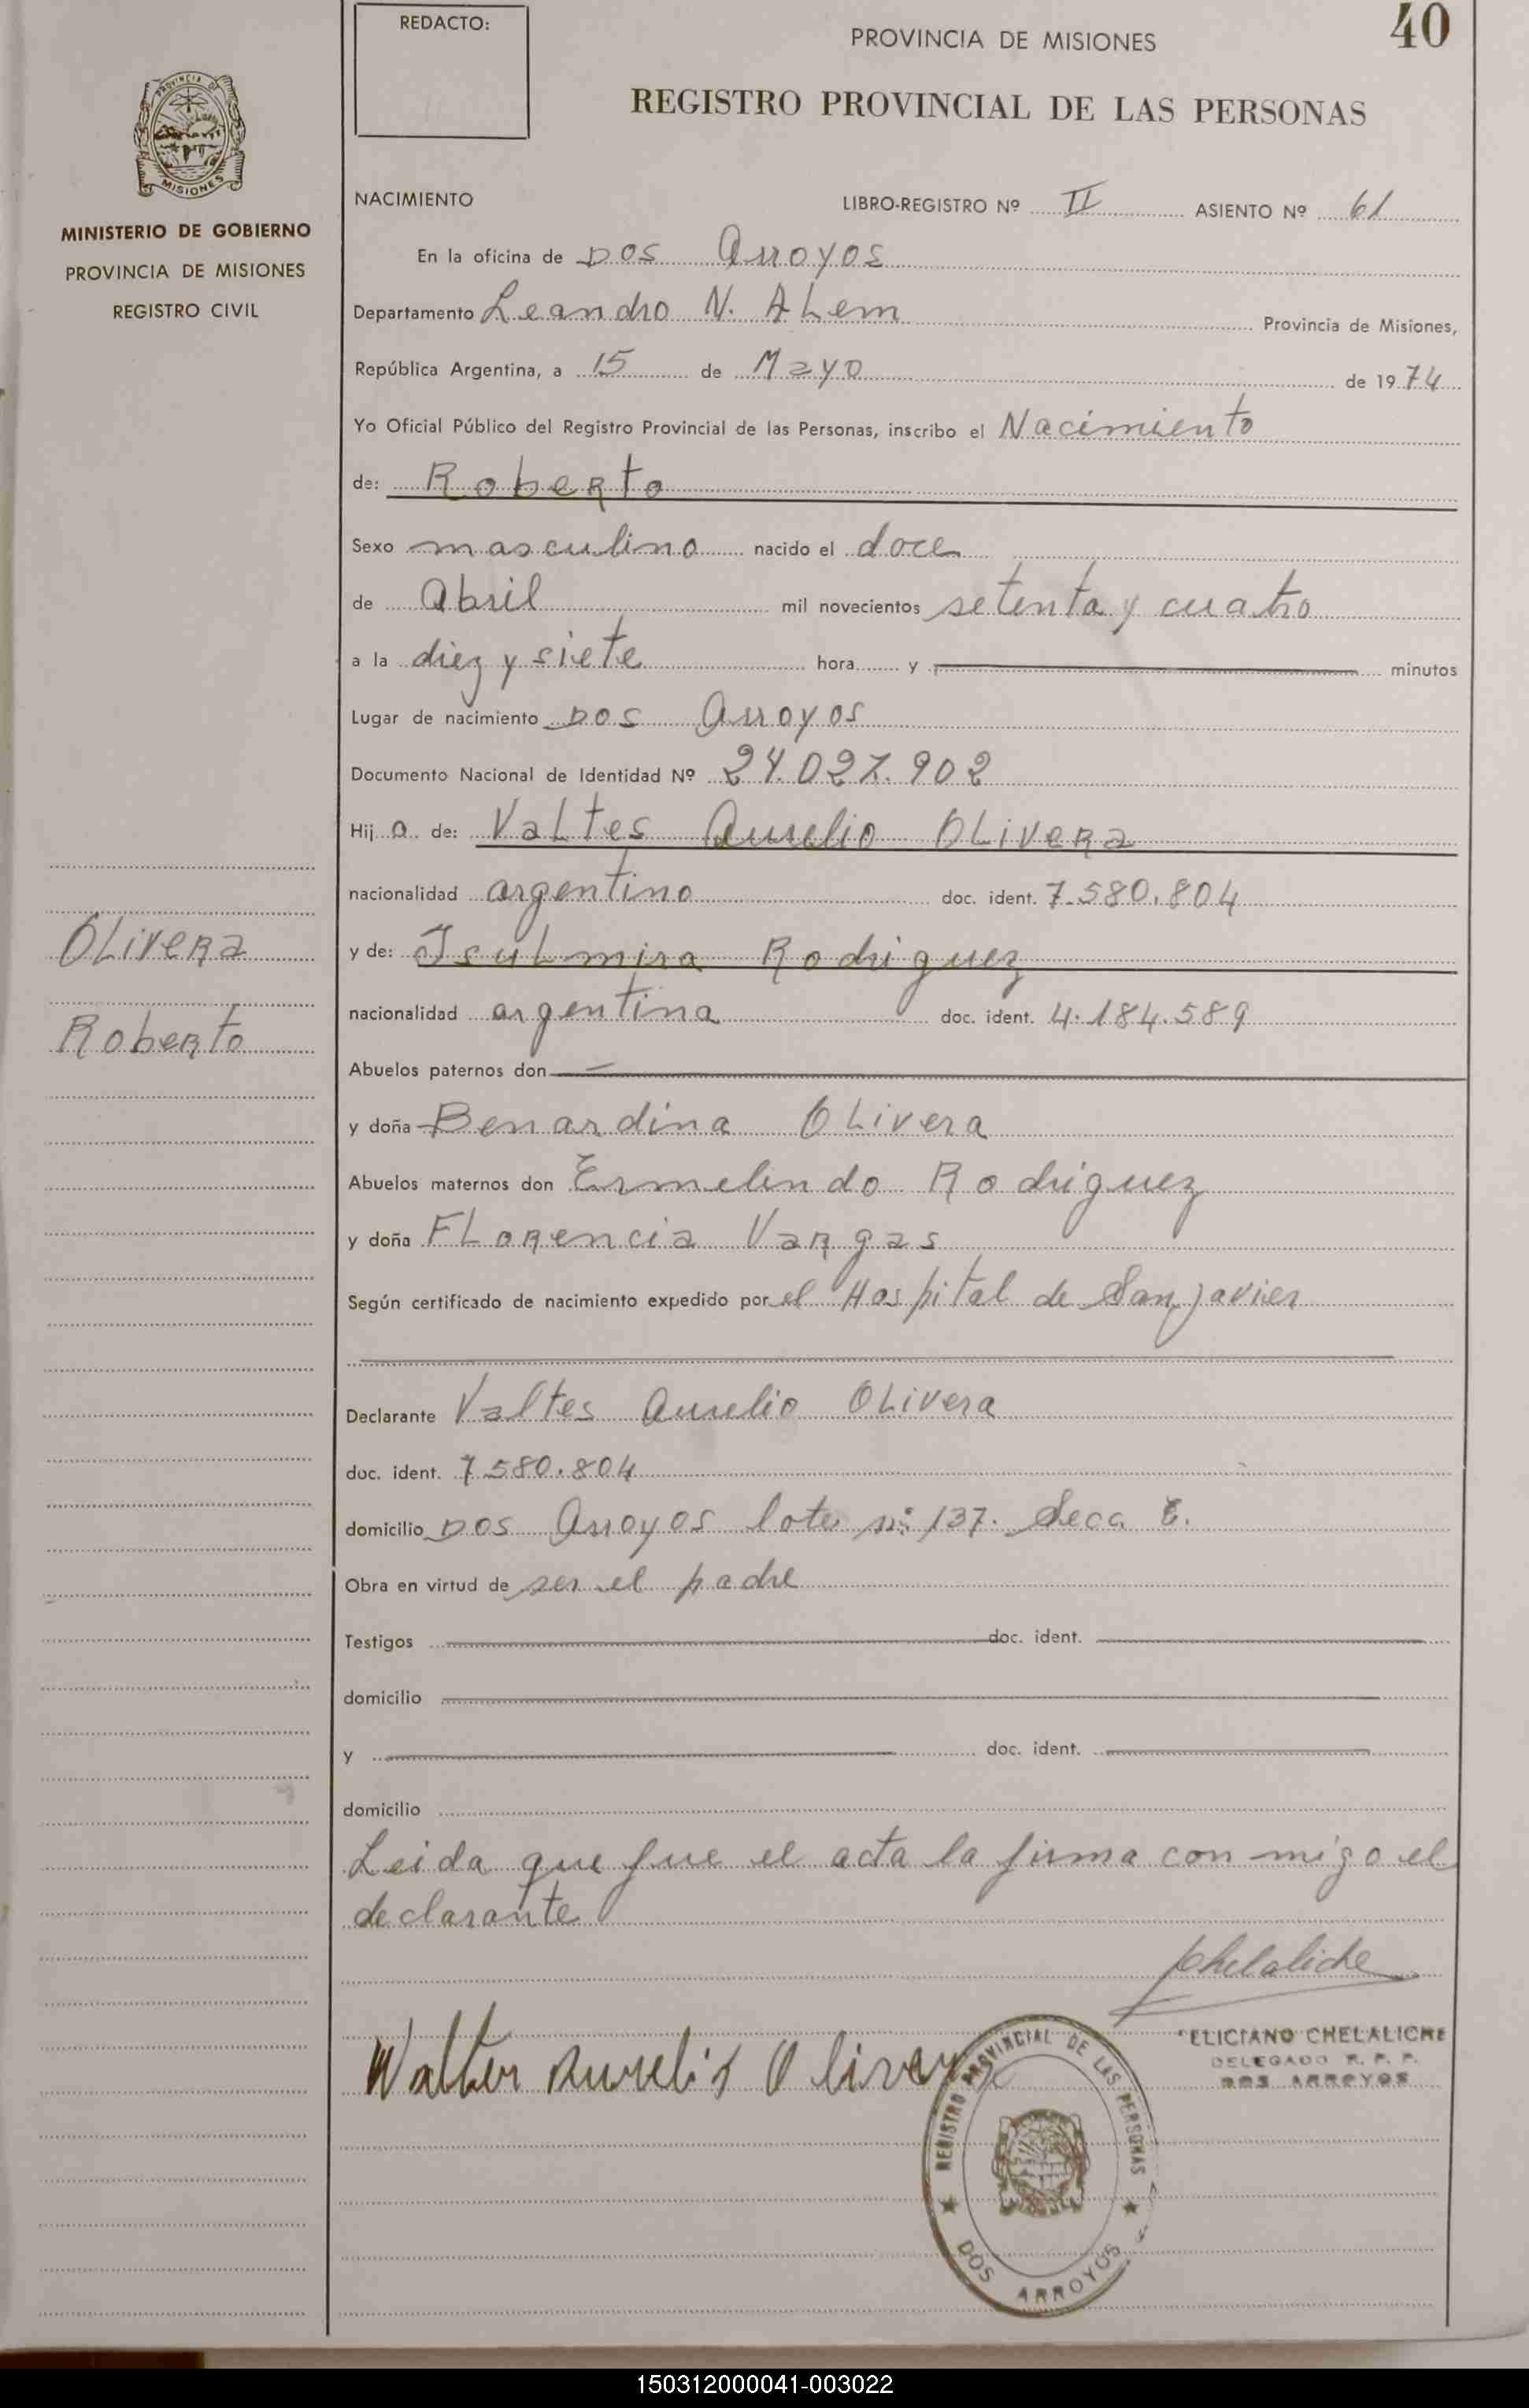 REDACTO:
PROVINCIA DE MISIONES
40
REGISTRO PROVINCIAL DE LAS PERSONAS
PROVINCIA DE
MISIONES
MINISTERIO DE GOBIERNO
PROVINCIA DE MISIONES
REGISTRO CIVIL
NACIMIENTO
LIBRO-REGISTRO Nº II ASIENTO Nº 61
En la oficina de Dos Arroyos
Departamento Leandro N. ALem Provincia de Misiones,
República Argentina, a 15 de Mayo de 1974
Yo Oficial Público del Registro Provincial de las Personas, inscribo el Nacimiento
de: Roberto
Sexo masculino nacido el doce
de Abril mil novecientos setenta y cuatro
a la diez y siete hora y minutos
Lugar de nacimiento Dos Arroyos
Documento Nacional de Identidad Nº 24.027.902
Hijo de: Valtes Aurelio OLivera
nacionalidad argentino doc. ident. 7.580.804
OLivera
y de: IsuLmira Rodriguez
Roberto
nacionalidad argentina doc. ident. 4.184.589
Abuelos paternos don
y doña Benardina OLivera
Abuelos maternos don Ermelindo Rodriguez
y doña FLorencia Vargas
Según certificado de nacimiento expedido por el Hospital de San Javier
Declarante Valtes Aurelio OLivera
doc. ident. 7.580.804
domicilio Dos Arroyos lote nº 137. Secc
Obra en virtud de ser el padre
Testigos doc. ident.
domicilio
y doc. ident.
domicilio
Leida que fue el acta la firma con migo el
declarante
Chelaliche
Walter Aurelio Olivera
FELICIANO CHELALICHE
DELEGADO R. P. P.
DOS ARROYOS
REGISTRO PROVINCIAL DE LAS PERSONAS
DOS ARROYOS
150312000041-003022